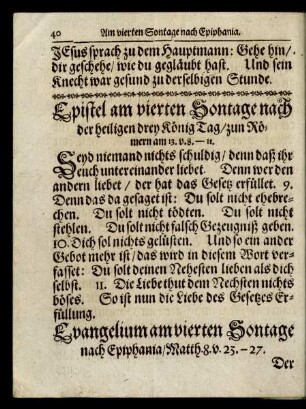 40 Am vierten Sontage nach Epiphania.
JEsus sprach zu dem Hauptmann: Gehe hin/
dir geschehe/ wie du gegläubt hast. Und sein
Knecht war gesund zu derselbigen Stunde.
Epistel am vierten Sontage nach
der heiligen drey König Tag/ zun Rö-
mern am 13. v. 8. — 11.
Seyd niemand nichts schuldig/ denn daß ihr
euch untereinander liebet. Denn wer den
andern liebet/ der hat das Gesetz erfüllet. 9.
Denn das da gesaget ist: Du solt nicht ehebre-
chen. Du solt nicht tödten. Du solt nicht
stehlen. Du solt nicht falsch Gezeugniß geben.
10. Dich sol nichts gelüsten. Und so ein ander
Gebot mehr ist/ das wird in diesem Wort ver-
fasset: Du solt deinen Nehesten lieben als dich
selbst. 11. Die Liebe thut dem Nechsten nichts
böses. So ist nun die Liebe des Gesetzes Er-
füllung.
Evangelium am vierten Sontage
nach Epiphania/ Matth. 8. v. 23. — 27.
Der